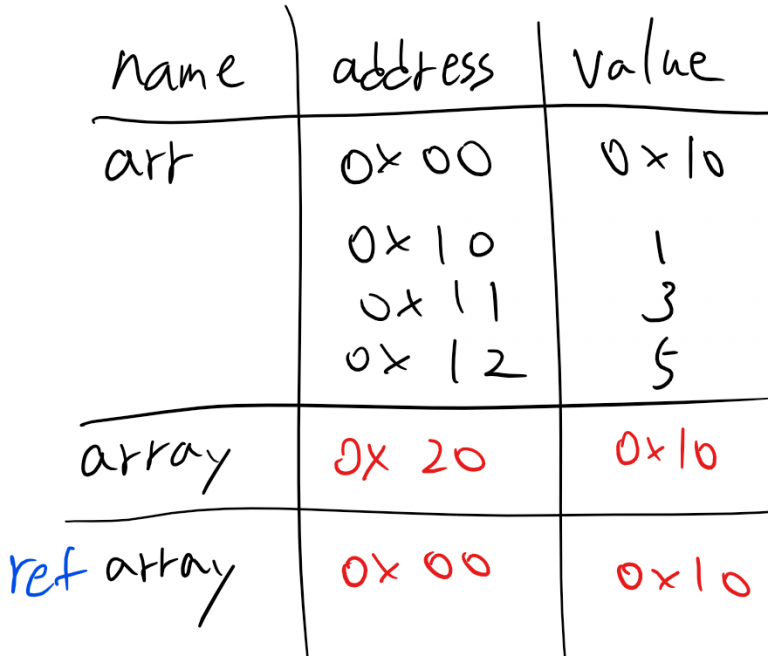 name address value
arr 0x00 0x10
0x10 1
0x11 3
0x12 5
array 0x20 0x10
ref array 0x00 0x10